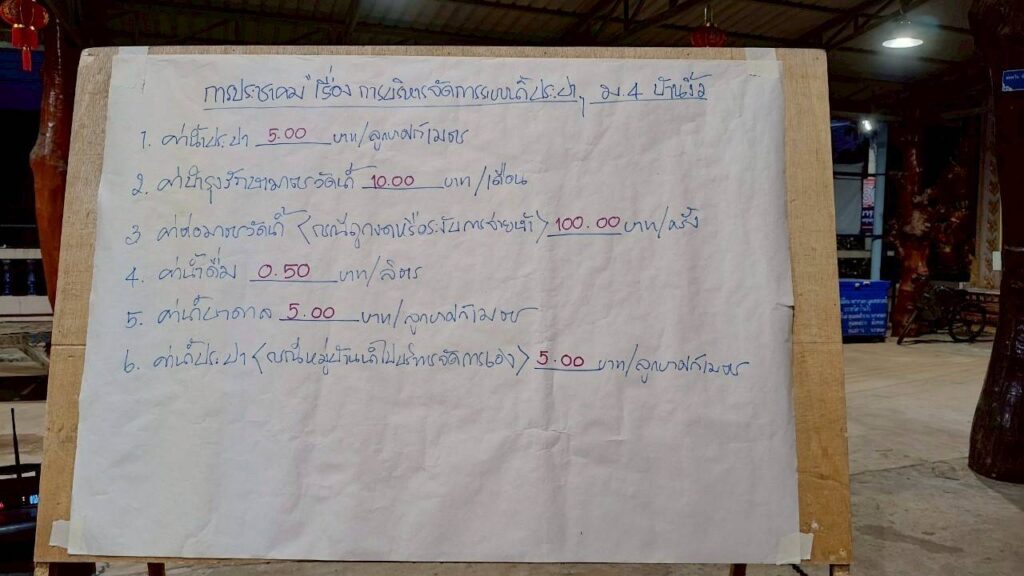 การประชาคม เรื่อง การบริหารจัดการระบบน้ำประปา ม.4 บ้านงิ้ว
1. ค่าน้ำประปา 5.00 บาท/ลูกบาศก์เมตร
2. ค่าบำรุงรักษามาตรวัดน้ำ 10.00 บาท/เดือน
3 ค่าต่อมาตรวัดน้ำ <กรณีถูกงดหรือระงับการจ่ายน้ำ> 100.00 บาท/ครั้ง
4. ค่าน้ำดื่ม 0.50 บาท/ลิตร
5. ค่าน้ำบาดาล 5.00 บาท/ลูกบาศก์เมตร
6. ค่าน้ำประปา <กรณีหมู่บ้านนำไปบริหารจัดการเอง> 5.00 บาท/ลูกบาศก์เมตร